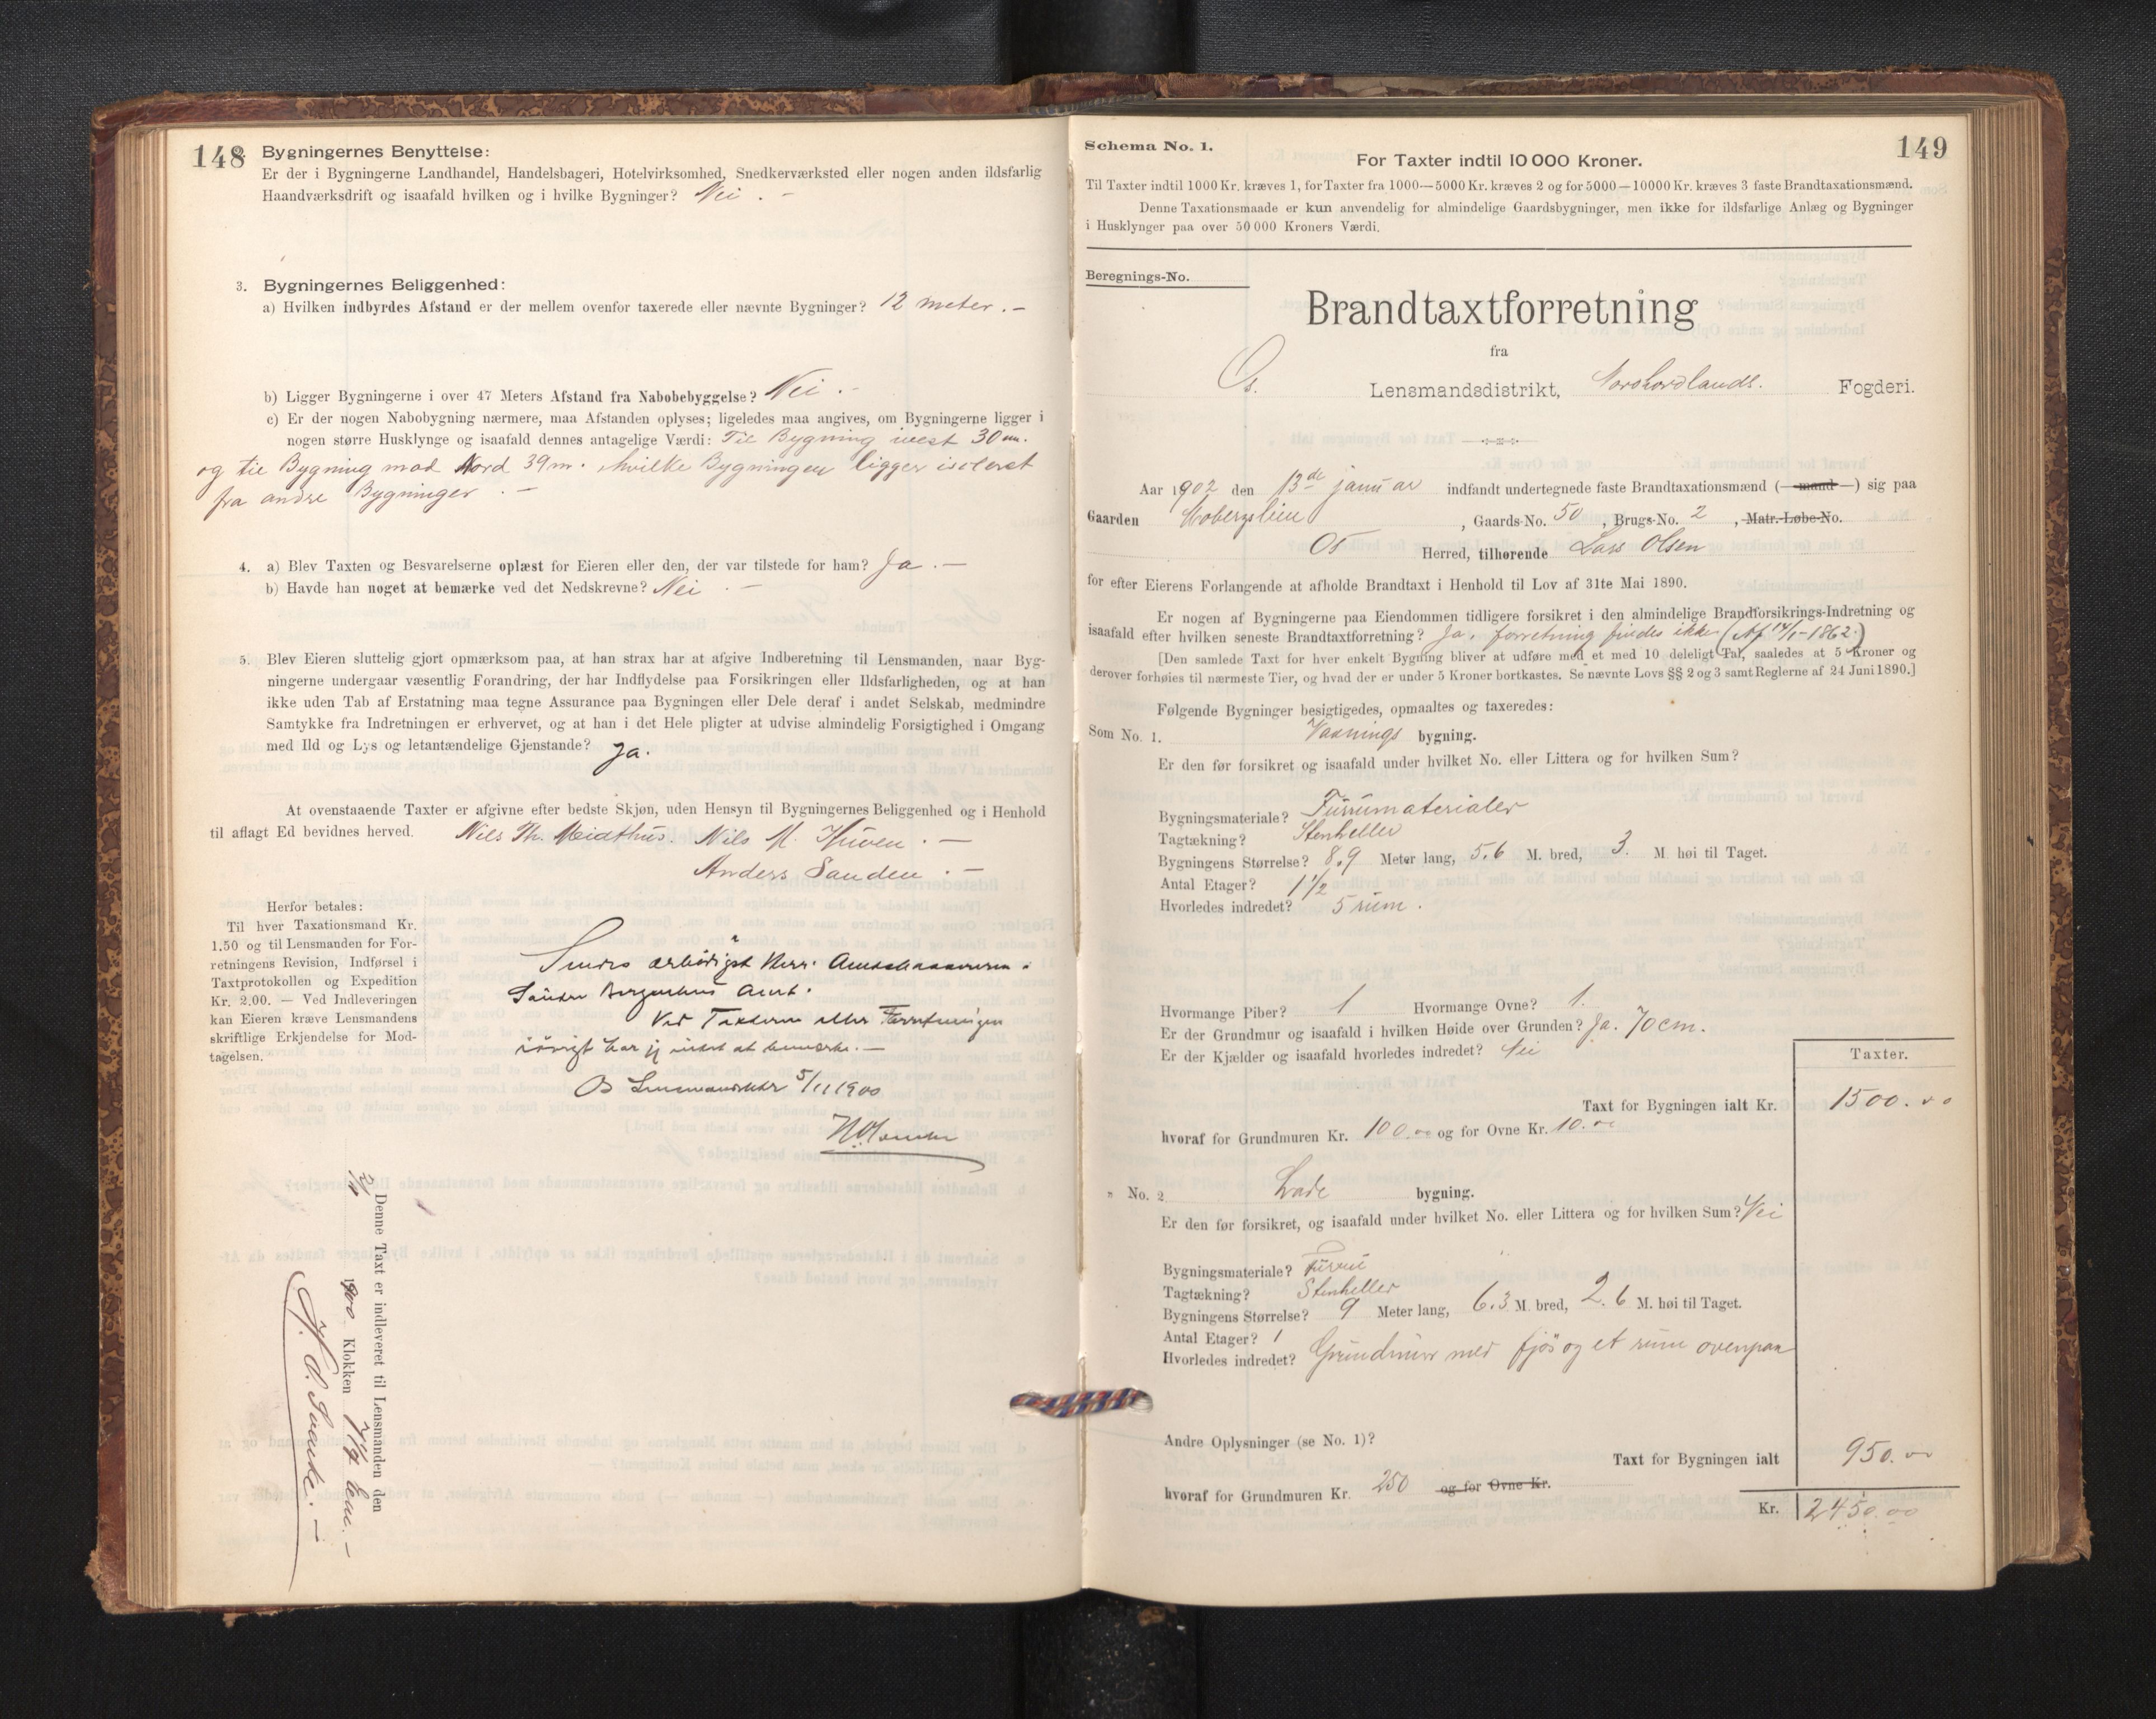 148
Bygningernes Benyttelse:
Er der i Bygningerne Landhandel, Handelsbageri, Hotelvirksomhed, Snedkerværksted eller nogen anden ildsfarlig
Haandværksdrift og isaafald hvilken og i hvilke Bygninger? Nei. -
3. Bygningernes Beliggenhed:
a) Hvilken indbyrdes Afstand er der mellem ovenfor taxerede eller nævnte Bygninger? 12 meter. -
b) Ligger Bygningerne i over 47 Meters Afstand fra Nabobebyggelse? Nei. -
c) Er der nogen Nabobygning nærmere, maa Afstanden oplyses; ligeledes maa angives, om Bygningerne ligger i
nogen større Husklynge og isaafald dennes antagelige Værdi: Til Bygning west 30 m.
og til Bygning mod Nord 39 m. hvilke Bygninger ligger isoleret
fra andre Bygninger. -
4. a) Blev Taxten og Besvarelserne oplæst for Eieren eller den, der var tilstede for ham? Ja. -
b) Havde han noget at bemærke ved det Nedskrevne? Nei. -
5. Blev Eieren sluttelig gjort opmærksom paa, at han strax har at afgive Indberetning til Lensmanden, naar Byg-
ningerne undergaar væsentlig Forandring, der har Indflydelse paa Forsikringen eller Ildsfarligheden, og at han
ikke uden Tab af Erstatning maa tegne Assurance paa Bygningen eller Dele deraf i andet Selskab, medmindre
Samtykke fra Indretningen er erhvervet, og at han i det Hele pligter at udvise almindelig Forsigtighed i Omgang
med Ild og Lys og letantændelige Gjenstande? Ja.
At ovenstaaende Taxter er afgivne efter bedste Skjøn, uden Hensyn til Bygningernes Beliggenhed og i Henhold
til aflagt Ed bevidnes herved. Nils Th. Meidthus. Nils M. Tveen. -
Anders Sanden. -
Herfor betales:
Til hver Taxationsmand Kr.
1.50 og til Lensmanden for For-
retningens Revision, Indførsel i
Taxtprotokollen og Expedition
Kr. 2.00. — Ved Indleveringen
kan Eieren kræve Lensmandens
skriftlige Erkjendelse for Mod-
tagelsen.
Sendes ærbødigst Herr Amtmanden i
Søndre Bergenhus Amt.
Ved Taxterne eller Forretningen
iøvrigt har jeg intet at bemærke. -
Os Lensmandsktr 5/11 1900
Denne Taxt er indleveret til Lensmanden den
1900 Klokken
149
Schema No. 1.
For Taxter indtil 10 000 Kroner.
Til Taxter indtil 1000 Kr. kræves 1, for Taxter fra 1000—5000 Kr. kræves 2 og for 5000—10000 Kr. kræves 3 faste Brandtaxationsmænd.
Denne Taxationsmaade er kun anvendelig for almindelige Gaardsbygninger, men ikke for ildsfarlige Anlæg og Bygninger
i Husklynger paa over 50 000 Kroners Værdi.
Beregnings-No.
Brandtaxtforretning
fra
Os. Lensmandsdistrikt, Nordhordlands. Fogderi.
Aar 1902 den 13de januar indfandt undertegnede faste Brandtaxationsmænd (—mand—) sig paa
Gaarden Mobergslien, Gaards-No. 50, Brugs-No. 2, Matr.-Løbe-No.
Os Herred, tilhørende Lars Olsen
for efter Eierens Forlangende at afholde Brandtaxt i Henhold til Lov af 31te Mai 1890.
Er nogen af Bygningerne paa Eiendommen tidligere forsikret i den almindelige Brandforsikrings-Indretning og
isaafald efter hvilken seneste Brandtaxtforretning? Ja, forretning findes ikke (Af 14/1-1862.)
[Den samlede Taxt for hver enkelt Bygning bliver at udføre med et med 10 deleligt Tal, saaledes at 5 Kroner og
derover forhøies til nærmeste Tier, og hvad der er under 5 Kroner bortkastes. Se nævnte Lovs §§ 2 og 3 samt Reglerne af 24 Juni 1890.]
Følgende Bygninger besigtigedes, opmaaltes og taxeredes:
Som No. 1. Vaanings bygning.
Er den før forsikret og isaafald under hvilket No. eller Littera og for hvilken Sum?
Bygningsmateriale? Furumaterialer
Tagtækning? Stenheller
Bygningens Størrelse? 8.9 Meter lang, 5.6 M. bred, 3. M. høi til Taget.
Antal Etager? 1 1/2
Hvorledes indredet? 5 rum.
Hvormange Piber? 1 Hvormange Ovne? 1.
Er der Grundmur og isaafald i hvilken Høide over Grunden? Ja. 70 cm.
Er der Kjælder og isaafald hvorledes indredet? Nei
Taxter.
Taxt for Bygningen ialt Kr. 1500.00
hvoraf for Grundmuren Kr. 100.00 og for Ovne Kr. 10.00
" No. 2 Lade bygning.
Er den før forsikret, og isaafald under hvilket No. eller Littera og for hvilken Sum? Nei
Bygningsmateriale? Furu
Tagtækning? Stenheller
Bygningens Størrelse? 9 Meter lang, 6.3 M. bred, 2.6 M. høi til Taget.
Antal Etager? 1
Hvorledes indredet? Grundmur med fjøs og et rum ovenpaa
Andre Oplysninger (se No. 1)?
Taxt for Bygningen ialt 950.00
hvoraf for Grundmuren Kr. 250 og for Ovne Kr.
Kr. 2450.00